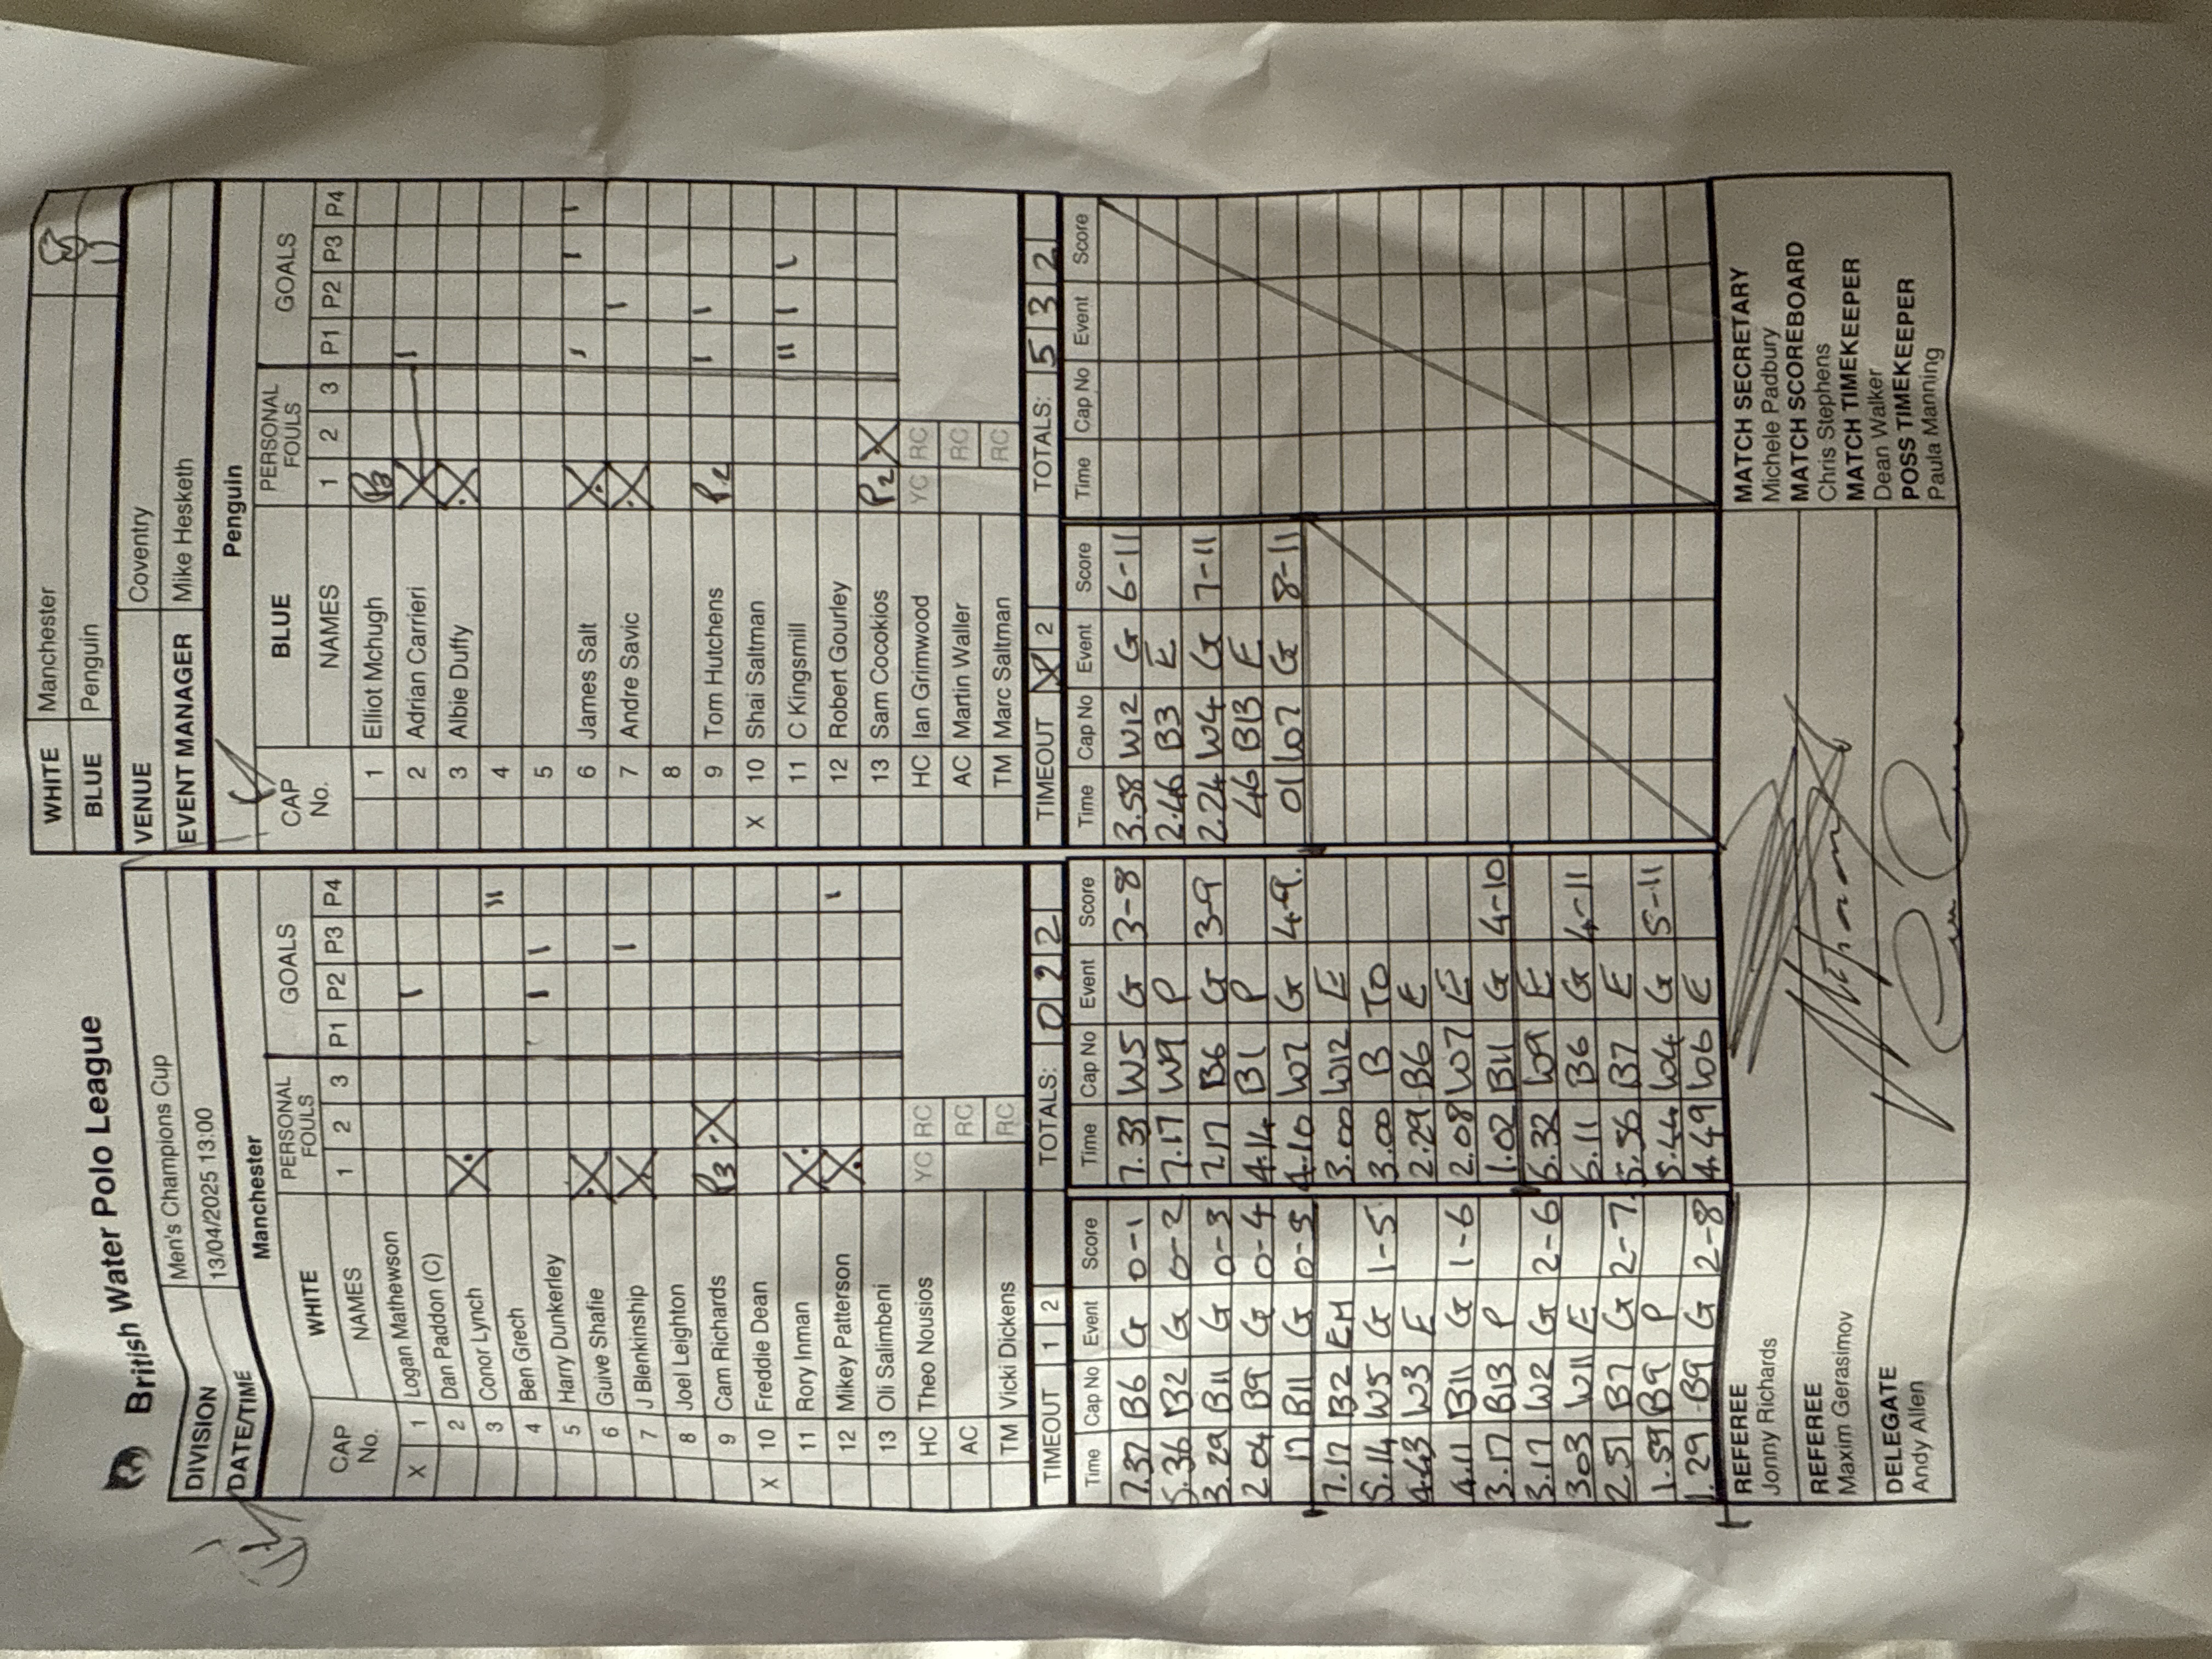 British Water Polo League
DIVISION Men's Champions Cup
DATE/TIME 13/04/2025 13:00
WHITE Manchester
BLUE Penguin
VENUE Coventry
EVENT MANAGER Mike Hesketh
Manchester
CAP No. WHITE NAMES PERSONAL FOULS 1 2 3 GOALS P1 P2 P3 P4
X 1 Logan Mathewson
2 Dan Paddon (C) I
3 Conor Lynch X
4 Ben Grech II
5 Harry Dunkerley I I
6 Guive Shafie X
7 J Blenkinship X I
8 Joel Leighton
9 Cam Richards P3 X
X 10 Freddie Dean
11 Rory Inman X
12 Mikey Patterson X I
13 Oli Salimbeni
HC Theo Nousios YC RC
AC RC
TM Vicki Dickens RC
TIMEOUT 1 2 TOTALS: 0 2 2 2
Penguin
CAP No. BLUE NAMES PERSONAL FOULS 1 2 3 GOALS P1 P2 P3 P4
1 Elliot Mchugh P3
2 Adrian Carrieri X I
3 Albie Duffy X
4
5
6 James Salt X I I I
7 Andre Savic X I
8
9 Tom Hutchens P2 I I
X 10 Shai Saltman
11 C Kingsmill II I I
12 Robert Gourley
13 Sam Cocokios P2 X
HC Ian Grimwood YC RC
AC Martin Waller RC
TM Marc Saltman RC
TIMEOUT X 2 TOTALS: 5 3 2
Time Cap No Event Score
7.37 B6 G 0-1
5.36 B2 G 0-2
3.29 B11 G 0-3
2 04 B9 G 0-4
17 B11 G 0-5
7.17 B2 EM
5.14 W5 G 1-5
4.43 W3 E
4.11 B11 G 1-6
3.17 B13 P
3.17 W2 G 2-6
303 W11 E
2.51 B7 G 2-7
1.59 B9 P
1.29 B9 G 2-8
Time Cap No Event Score
7.33 W5 G 3-8
7.17 W9 P
7.17 B6 G 3-9
4.14 B1 P
4.10 W7 G 4-9.
3.00 W12 E
3.00 B TO
2.29 B6 E
2.08 W7 E
1.02 B11 G 4-10
6.32 W9 E
6.11 B6 G 4-11
5.56 B7 E
5.44 W4 G 5-11
4.49 W6 E
Time Cap No Event Score
3.58 W12 G 6-11
2.46 B3 E
2.24 W4 G 7-11
46 B13 E
01 W7 G 8-11
Time Cap No Event Score
REFEREE
Jonny Richards
REFEREE
Maxim Gerasimov
DELEGATE
Andy Allen
MATCH SECRETARY
Michele Padbury
MATCH SCOREBOARD
Chris Stephens
MATCH TIMEKEEPER
Dean Walker
POSS TIMEKEEPER
Paula Manning